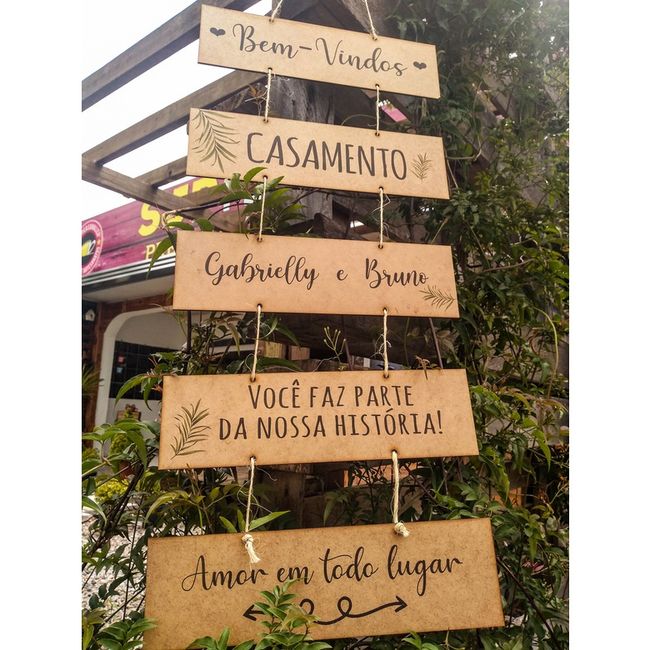 Bem-Vindos
CASAMENTO
Gabrielly e Bruno
VOCÊ FAZ PARTE
DA NOSSA HISTÓRIA!
Amor em todo lugar